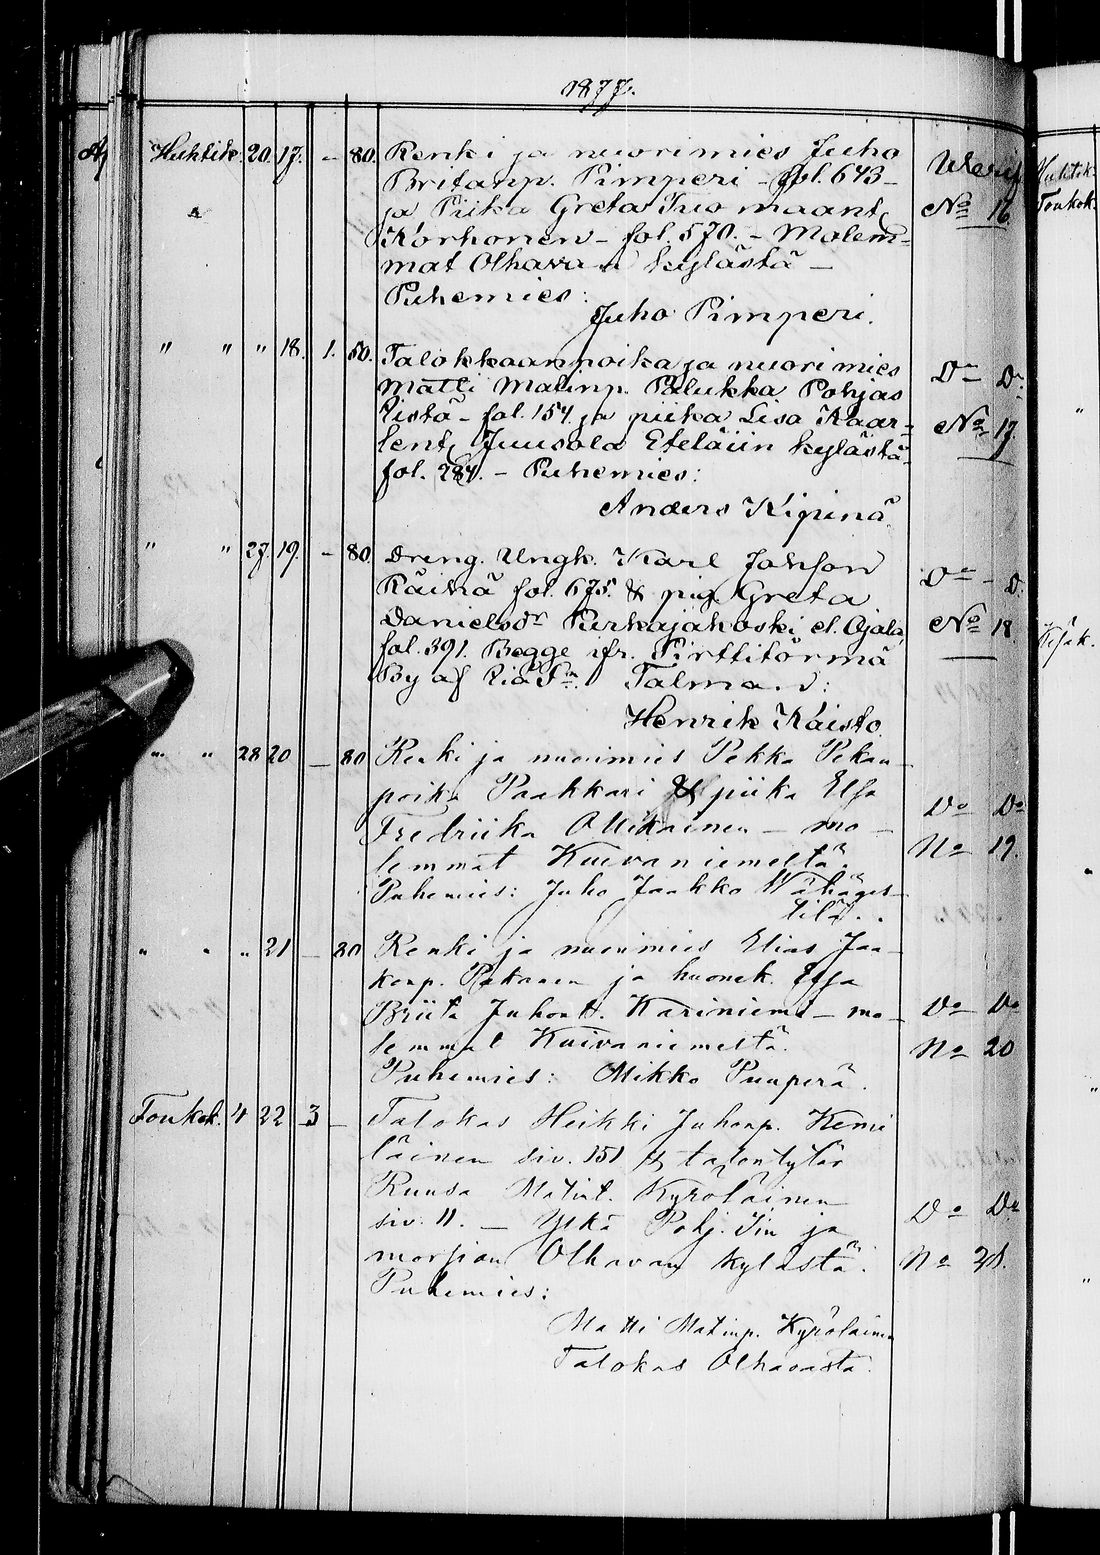 1877.
Huhtik. 20. 17. – 80. Renki ja nuorimies Juho
Britanp. Pimperi – fol. 643 –
ja Piika Greta Tuomaant.
Korhonen – fol. 570. – Molem-
mat Olhavan kylästä –
Puhemies:
Juho Pimperi.
Werif.
No 16
" " " 18. 1. 50. Talokkaanpoika ja nuorimies
Matti Matinp. Palukka Pohjas
Iistä – fol. 154 ja piika Lisa Kaar-
lent. Juusola Eteläiin kylästä
fol. 284. – Puhemies:
Anders Kipinä.
Do Do
No 17.
" " 27. 19. – 80. Dreng. Ungk. Karl Johsson
Räinä fol. 675. & pig. Greta
Danielsdr Purkajakoski el. Ojala
fol. 391. Begge ifr. Pirttitörmä
By af Sn. Talman:
Henrik Kaisto.
Do – D.
No 18.
" " 28 20 – 80 Renki ja nuorimies Pekka Pekan-
poika Paakkari & piika Elsa
Fredriika Ollikainen – mo-
lemmat Kuivaniemeltä.
Puhemies: Juho Jaakko
tilä.
Do Do
No 19.
" " " 21 – 80 Renki ja nuorimies Elias Jaa-
konp. ja huonek. Elsa
Briita Juhont. Kariniemi – mo-
lemmat Kuivaniemeltä.
Puhemies: Mikko Puuperä.
Do Do
No 20
Toukok. 4 22 3 – Talokas Heikki Juhonp. Kemi
läinen siv. 151 & talontytär
Ruusa Matint. Kyröläinen
siv. 11. – Ylkä Pohj. Iin ja
morsian Olhavan kylästä.
Puhemies:
Matti Matinp. Kyröläinen
Talokas Olhavasta.
Do Do
No 21.
Huhtik.
Toukok.
Kesäk.